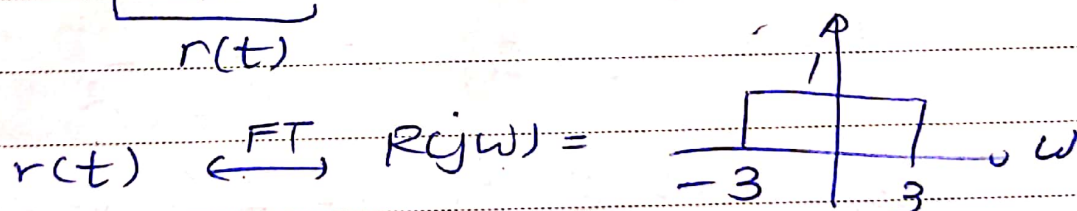 r(t)
r(t) FT R(jω) = 1 ω
-3 3